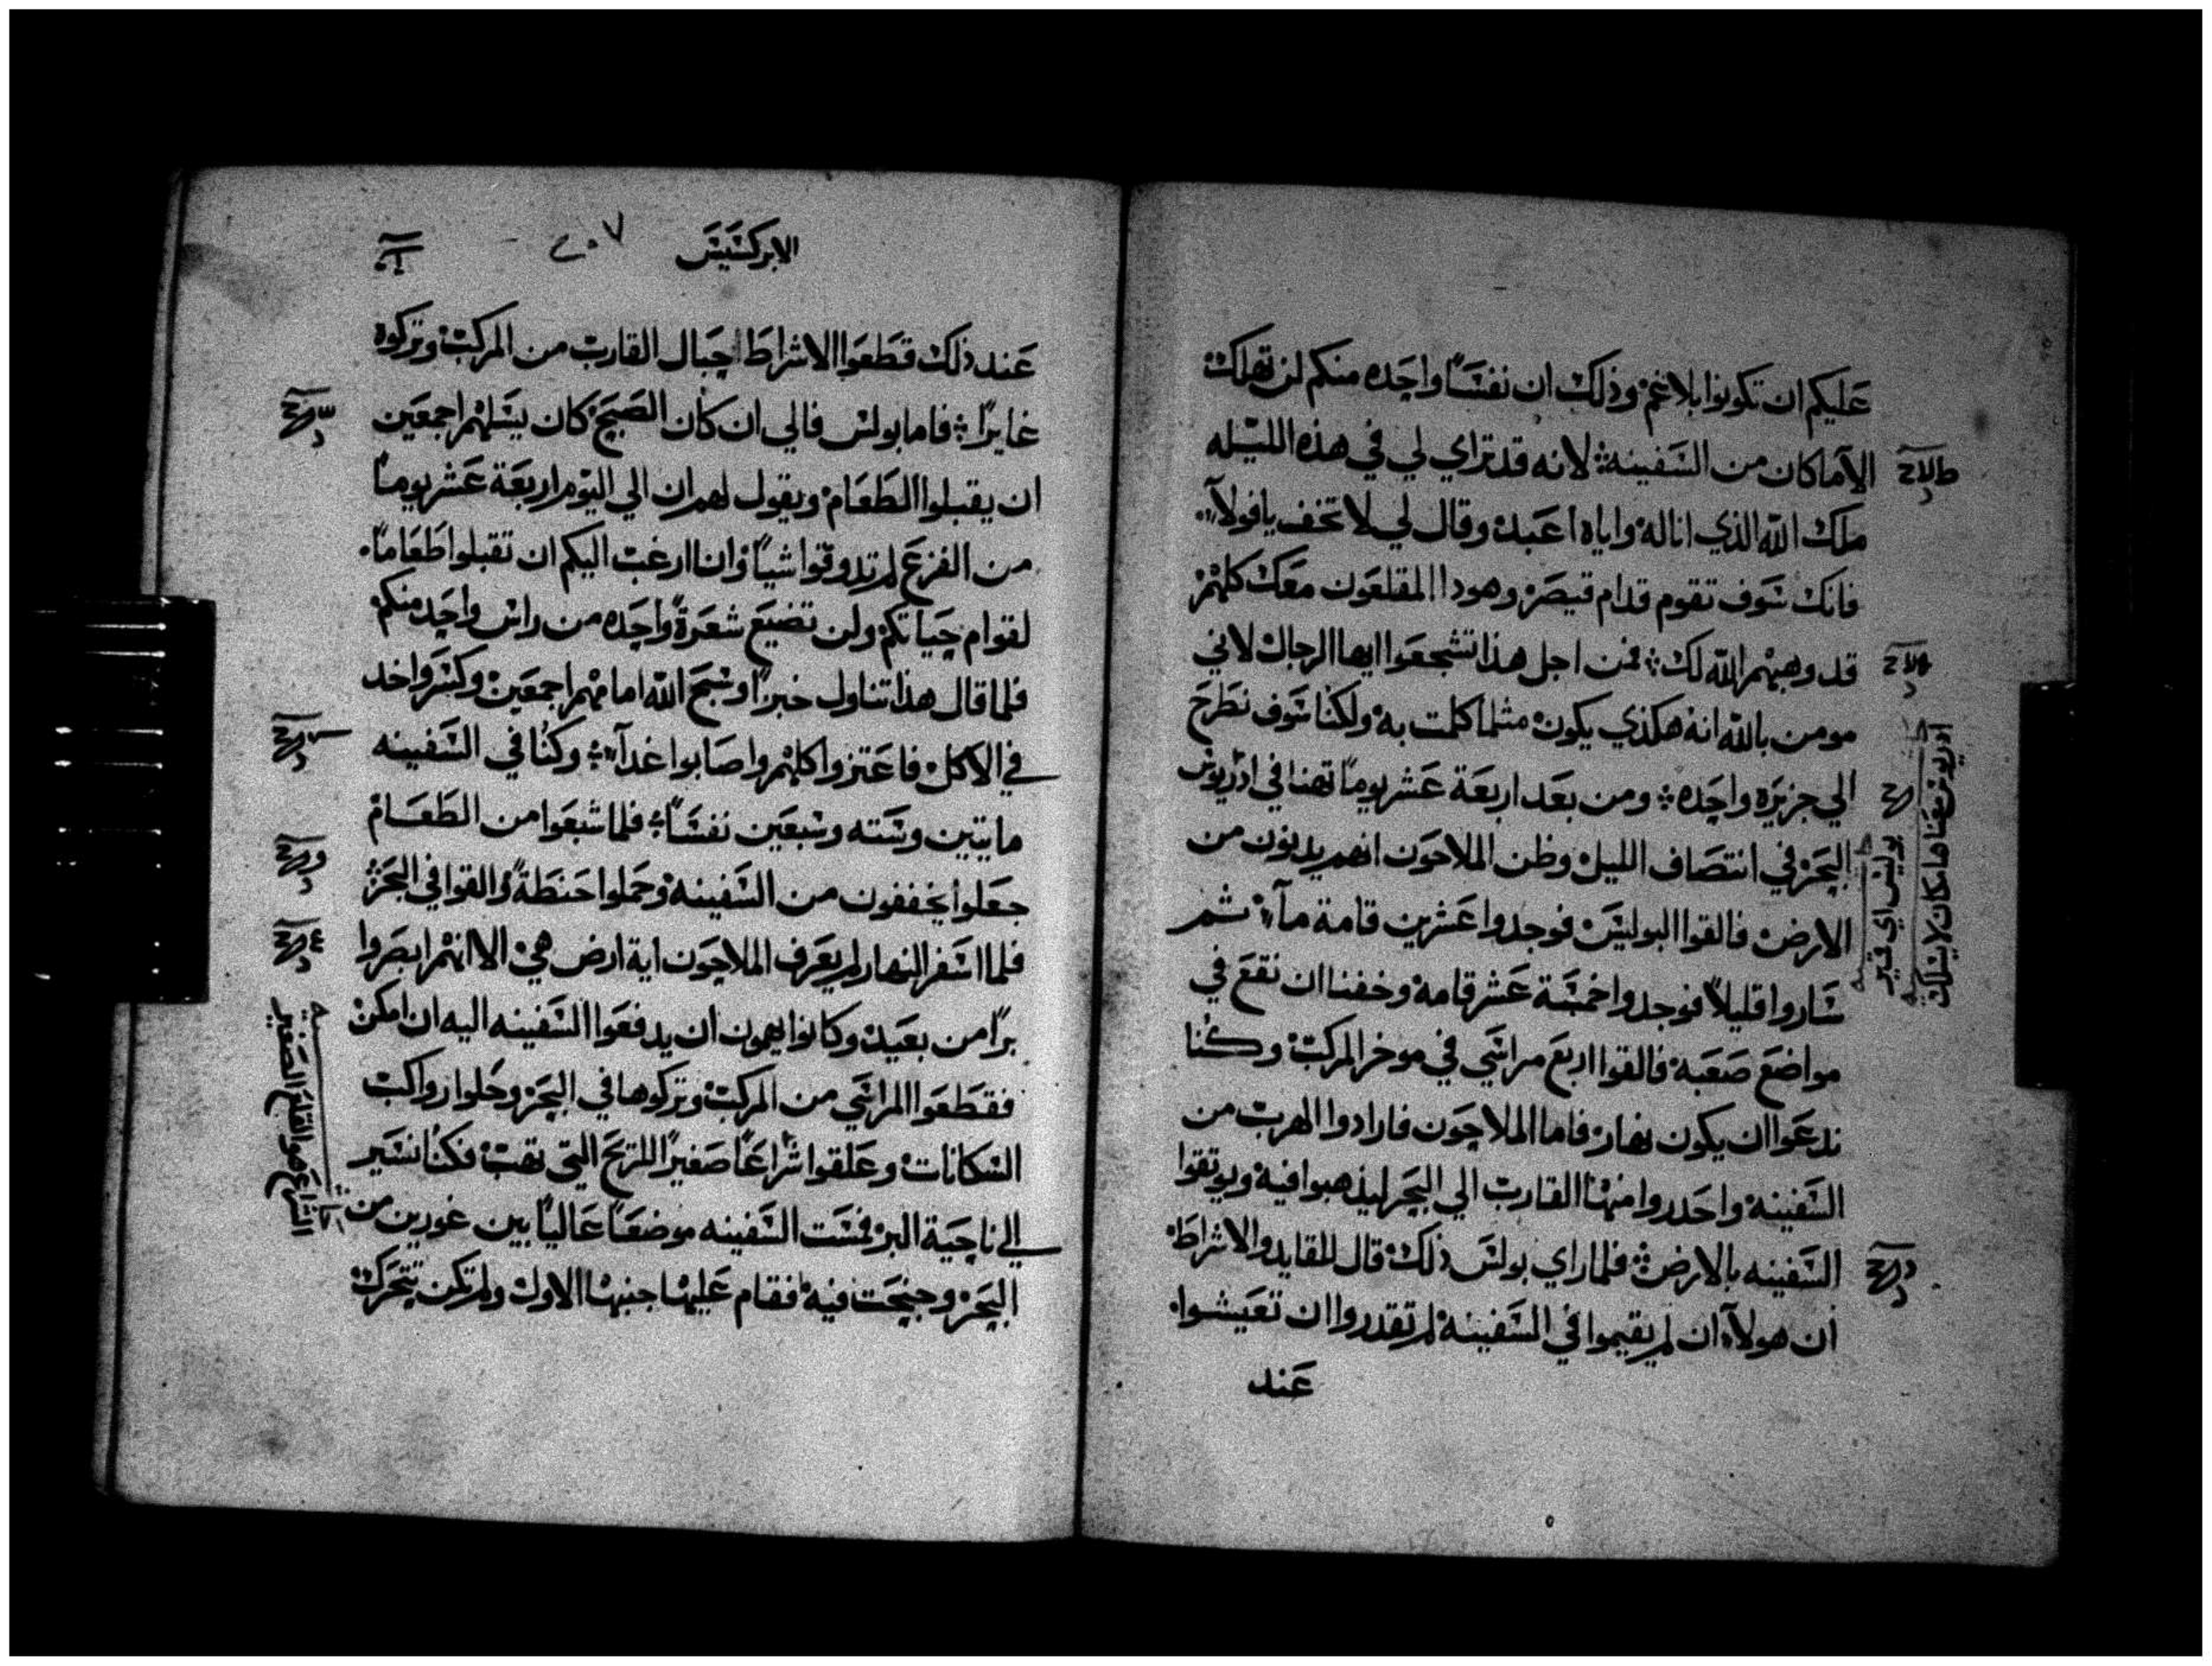 عَليكم ان تكونوا بلا غم وذلك ان نفسًا واحده منكم لن تهلك
الا ما كان من السَفينه لانه قد تراي لي في هذه الليله
ملك الله الذي انا له واياه اعَبد وقال لي لا تخف يا فولا
فانك سَوف تقوم قدام قيصر وهوذا المقلعَون معَك كلهم
قد وهبهم الله لك فمن اجل هذا تشجعَوا ايها الرجال لاني
مومن بالله انه هكذي يكون مثلما كلمت به ولكنا سَوف نطَرح
الي جزيره واحِده ومن بعَد اربعَة عَشر يومًا تهنا في ادريوس
البحَر في انتصَاف الليل وظن الملاحَون انهم يدنون من
الارض فالقوا البوليسَ فوجدوا عَشرين قامة مآء ثم
سَاروا قليلاً فوجدوا خمسَة عَشر قامه وخفنا ان نقعَ في
مواضعَ صَعَبه فالقوا اربعَ مراسَي في موخر المركب وكنا
ندعَوا ان يكون نهار فاما الملاحَون فارادوا الهرب من
السَفينه واحَدروا منها القارب الي البحَر ليذهبوا فيه ويوتقوا
السَفينه بالارض فلما راي بولسَ ذلك قال للقايد والاشراطَ
ان هولآء ان لم يقيموا في السَفينه لم تقدروا ان تعَيشوا
عَند
ادريوس
بوليسَ اي قير
الابركسَيسَ ٢٠٧
عَند ذلك قطَعَوا الاشراطَ احِبال القارب من المركب وتركوه
غايرًا فاما بولس فالي ان كان الصَبح كان يسَلهم اجمعَين
ان يقبلوا الطَعَام ويقول لهم ان الي اليوم اربعَة عَشر يومًا
من الفزعَ لم تدوقوا شيًا وانا ارغب اليكم ان تقبلوا طَعَامًا
لقوام حِياتكم ولن تضيعَ شعَرةً واحِده من راس واحِد منكم
فلما قال هذا تناول خبزًا وسَبحَ الله امامهم اجمعَين وكسَر واخد
في الاكل فاعَتزوا كلهم واصَابوا غدآء وكنا في السَفينه
مايتين وسَته وسَبعَين نفسَا فلما شبعَوا من الطَعَام
جعَلوا يخففون من السَفينه وحَملوا حَنطَةً والقوا في البحَر
فلما اسَفر النهار لم يعَرف الملاحَون اية ارض هي الا انهم ابصَروا
برًا من بعَيد وكانوا يهمون ان يدفعَوا السَفينه اليه ان امكن
فقطَعَوا المراسَي من المركب وتركوها في البحَر وحَلوا رواكب
السَكانات وعَلقوا شراعًا صَغيرًا للريحَ التي تهب فكنا نسَير
الي ناحَية البر فمسَت السَفينه موضعًا عَاليًا بين غورين من
البحَر وجنحِت فيه فقام عَليها جنبها الاول ولم تكن تتحَرك
الشراعَ هو القلعَ الصَغير